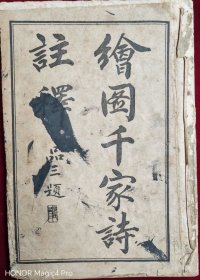 繪圖千家詩
註釋
品三題
HONOR Magic4 Pro